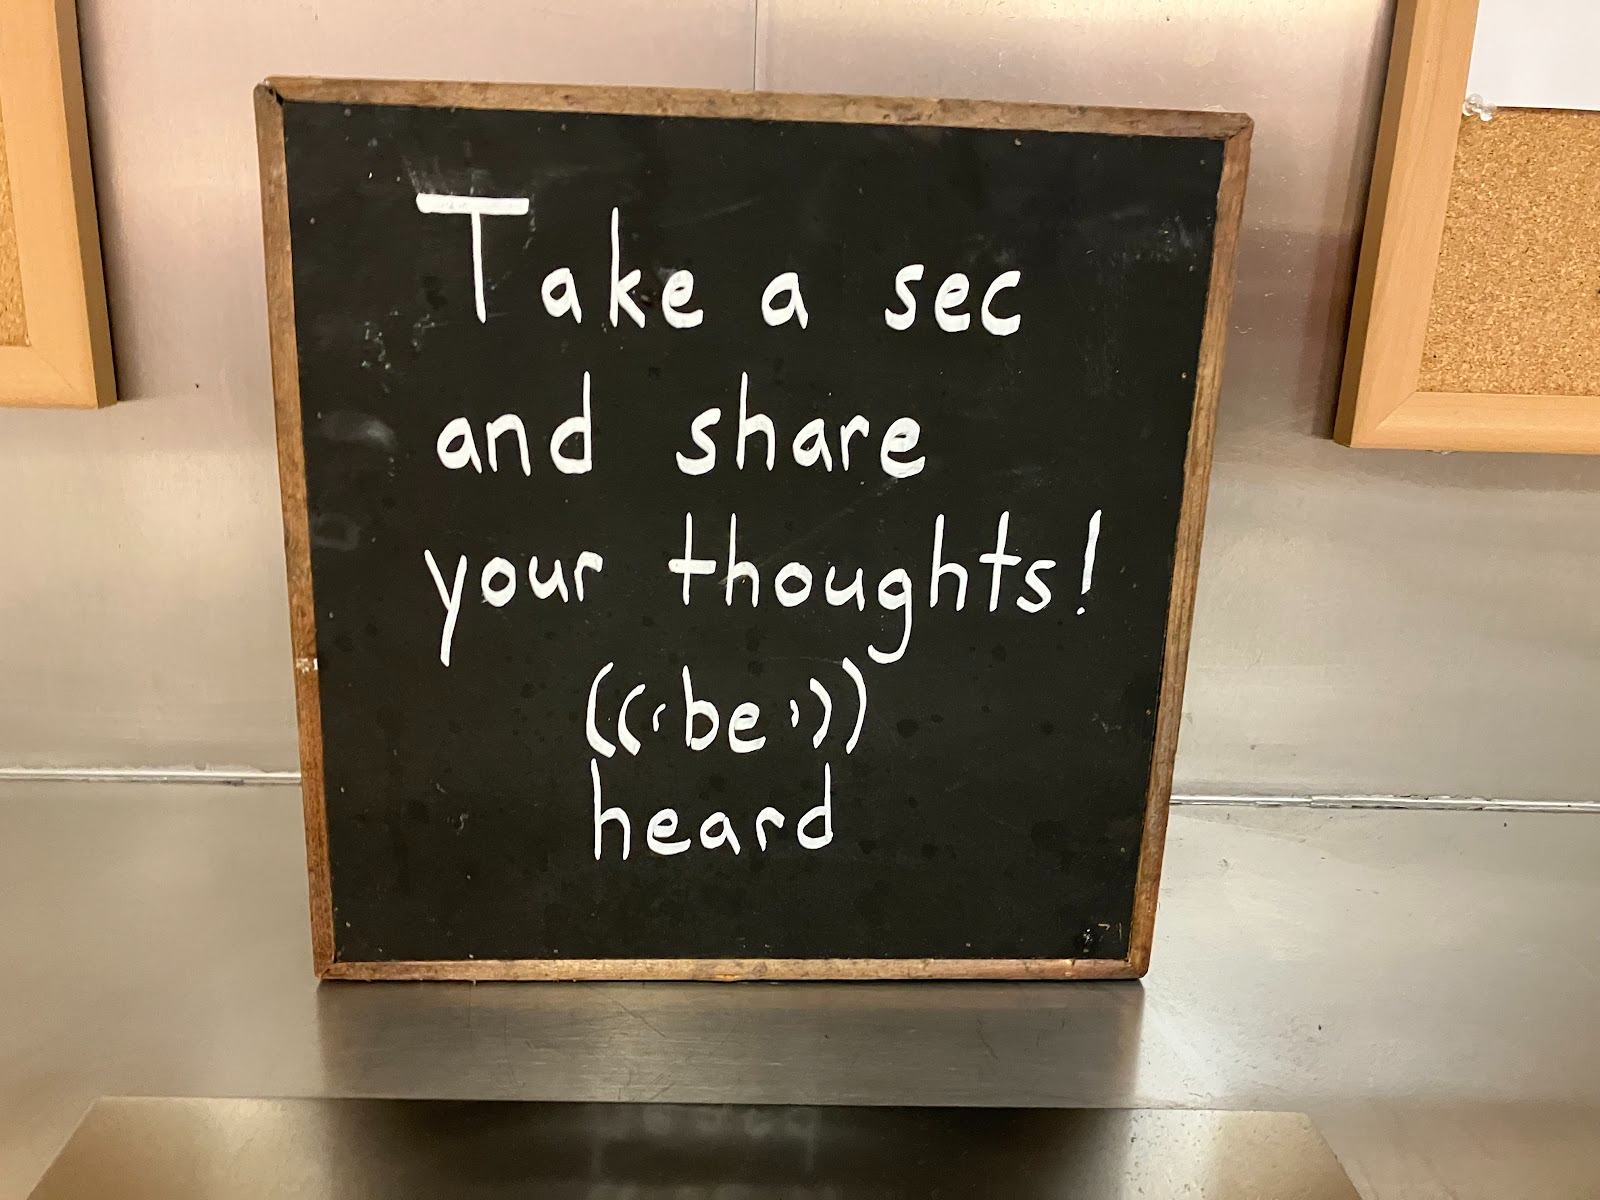 Take a sec
and share
your thoughts!
((‹be›))
heard